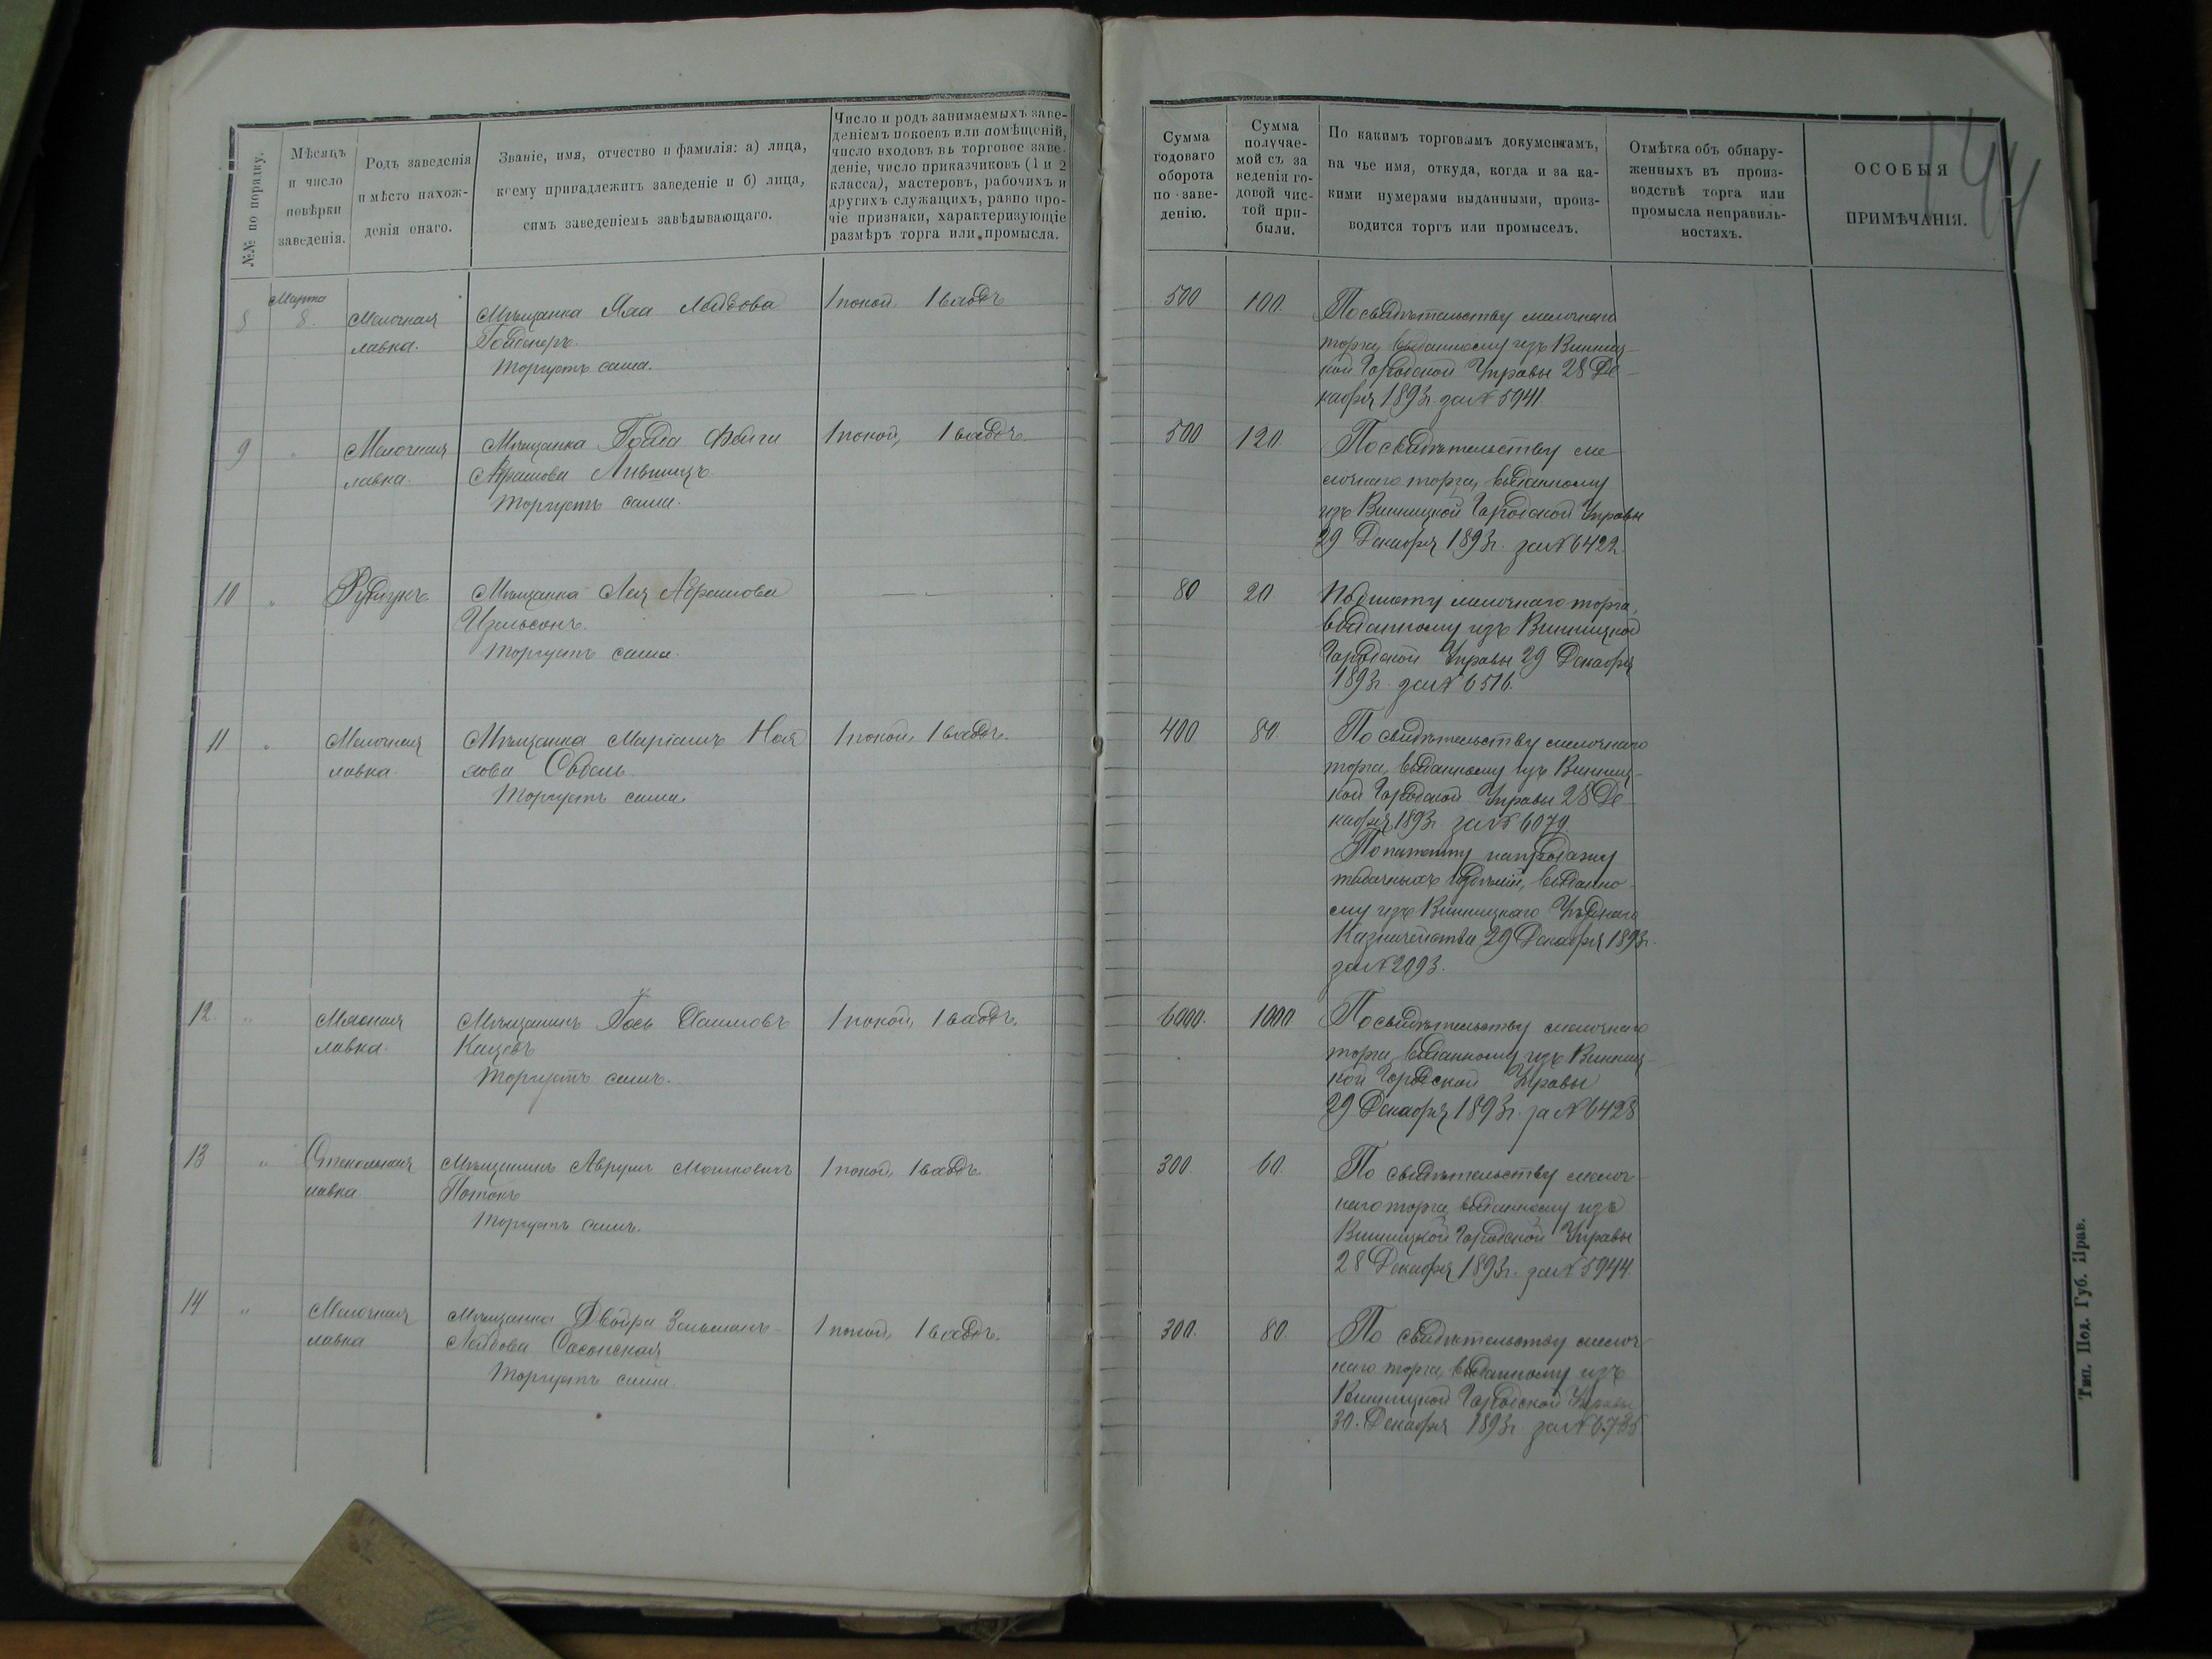 №№ по порядку.
Мѣсяцъ
и число
повѣрки
заведенія.
Родъ заведенія
и мѣсто нахож-
денія онаго.
Званіе, имя, отчество и фамилія: а) лица,
коему принадлежитъ заведеніе и б) лица,
симъ заведеніемъ завѣдывающаго.
Число и родъ занимаемыхъ заве-
деніемъ покоевъ или помѣщеній,
число входовъ въ торговое заве-
деніе, число приказчиковъ (1 и 2
класса), мастеровъ, рабочихъ и
другихъ служащихъ, равно про-
чіе признаки, характеризующіе
размѣръ торга или промысла.
Сумма
годоваго
оборота
по заве-
денію.
Сумма
получае-
мой съ за
веденія го-
довой чис-
той при-
были.
По какимъ торговымъ документамъ,
на чье имя, откуда, когда и за ка-
кими нумерами выданными, произ-
водится торгъ или промыселъ.
Отмѣтка объ обнару-
женныхъ въ произ-
водствѣ торга или
промысла неправиль-
ностяхъ.
ОСОБЫЯ
ПРИМѢЧАНІЯ.
8
Марта
8.
Мелочная
лавка.
Мѣщанка Лейбова
Торгуетъ сама.
1 покой, 1 входъ
500
100.
По свидѣтельству мелочнаго
торга, выданному изъ Винниц-
кой Городской Управы 28 Де-
кабря 1893 г. за № 5941.
9
"
Мелочная
лавка.
Мѣщанка Голда Фейги
Абрамова Лившицъ.
Торгуетъ сама.
1 покой, 1 входъ.
500
120
По свидѣтельству ме-
лочнаго торга, выданному
изъ Винницкой Городской Управы
29 Декабря 1893 г. за № 6422.
10
"
Рундукъ
Мѣщанка Лея Абрамова
Ицельсонъ.
Торгуетъ сама.
— " —
80
20
По билету мелочнаго торга,
выданному изъ Винницкой
Городской Управы 29 Декабря
1893 г. за № 6516.
11
"
Мелочная
лавка.
Мѣщанка Маріамъ
Торгуетъ сама.
1 покой, 1 входъ.
400
80.
По свидѣтельству мелочнаго
торга, выданному изъ Винниц-
кой Городской Управы 28 Де-
кабря 1893 г. за № 6079.
По патенту на продажу
табачныхъ издѣлій, выданно-
му изъ Винницкаго Уѣзднаго
Казначейства 29 Декабря 1893 г.
за № 2093.
12.
"
Мясная
лавка.
Мѣщанинъ Хаимовъ
Кацевъ
Торгуетъ самъ.
1 покой, 1 входъ.
6000.
1000
По свидѣтельству мелочнаго
торга, выданному изъ Винниц-
кой Городской Управы
29 Декабря 1893 г. за № 6428
13
"
Стекольная
лавка
Мѣщанинъ Аврумъ Мошковичъ
Потокъ
Торгуетъ самъ.
1 покой, 1 входъ.
300.
60.
По свидѣтельству мелоч-
наго торга, выданному изъ
Винницкой Городской Управы
28 Декабря 1893 г. за № 5944.
14
"
Мелочная
лавка
Мѣщанка Двойра Зельманъ-
Лейбова Сасонская
Торгуетъ сама.
1 покой, 1 входъ.
300.
80.
По свидѣтельству мелоч-
наго торга, выданному изъ
Винницкой Городской Управы
30. Декабря 1893 г. за № 6735.
Тип. Под. Губ. Прав.